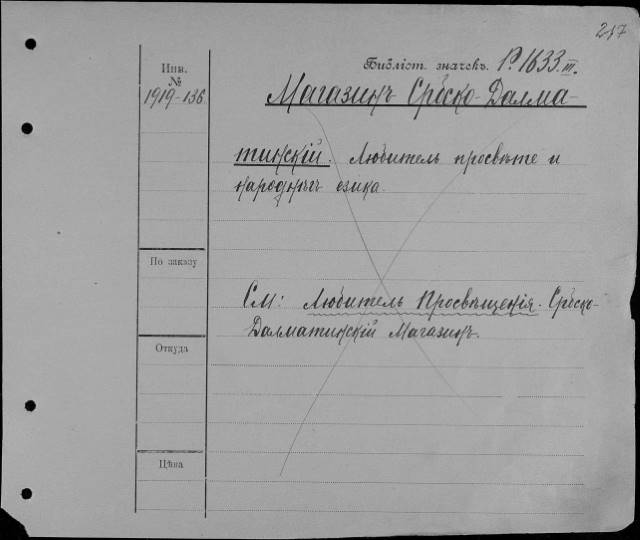 217
Библіот. значек. P. 1633.III.
Инв.
№
1919-136
Магазинъ Србско-Далма-
тинскій. Любитель просвѣте и
народнѣгъ езика.
По заказу
См: Любитель Просвѣщенія. Србско-
Далматинскій Магазинъ.
Откуда
Цѣна